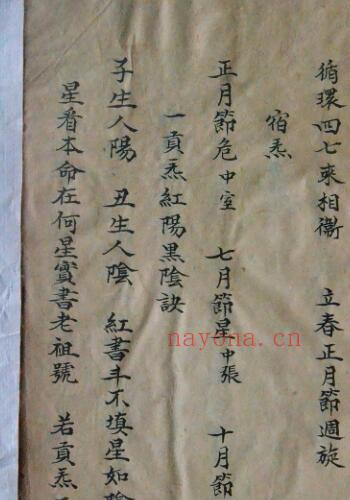 循環四七來相衝 立春正月節週旋
宿炁
正月節危中室 七月節星中張 十月節
一貢炁紅陽黑陰訣
子生人陽 丑生人陰 紅書斗不填星如陰
星看本命在何星實書老祖號 若貢炁
nayona.cn